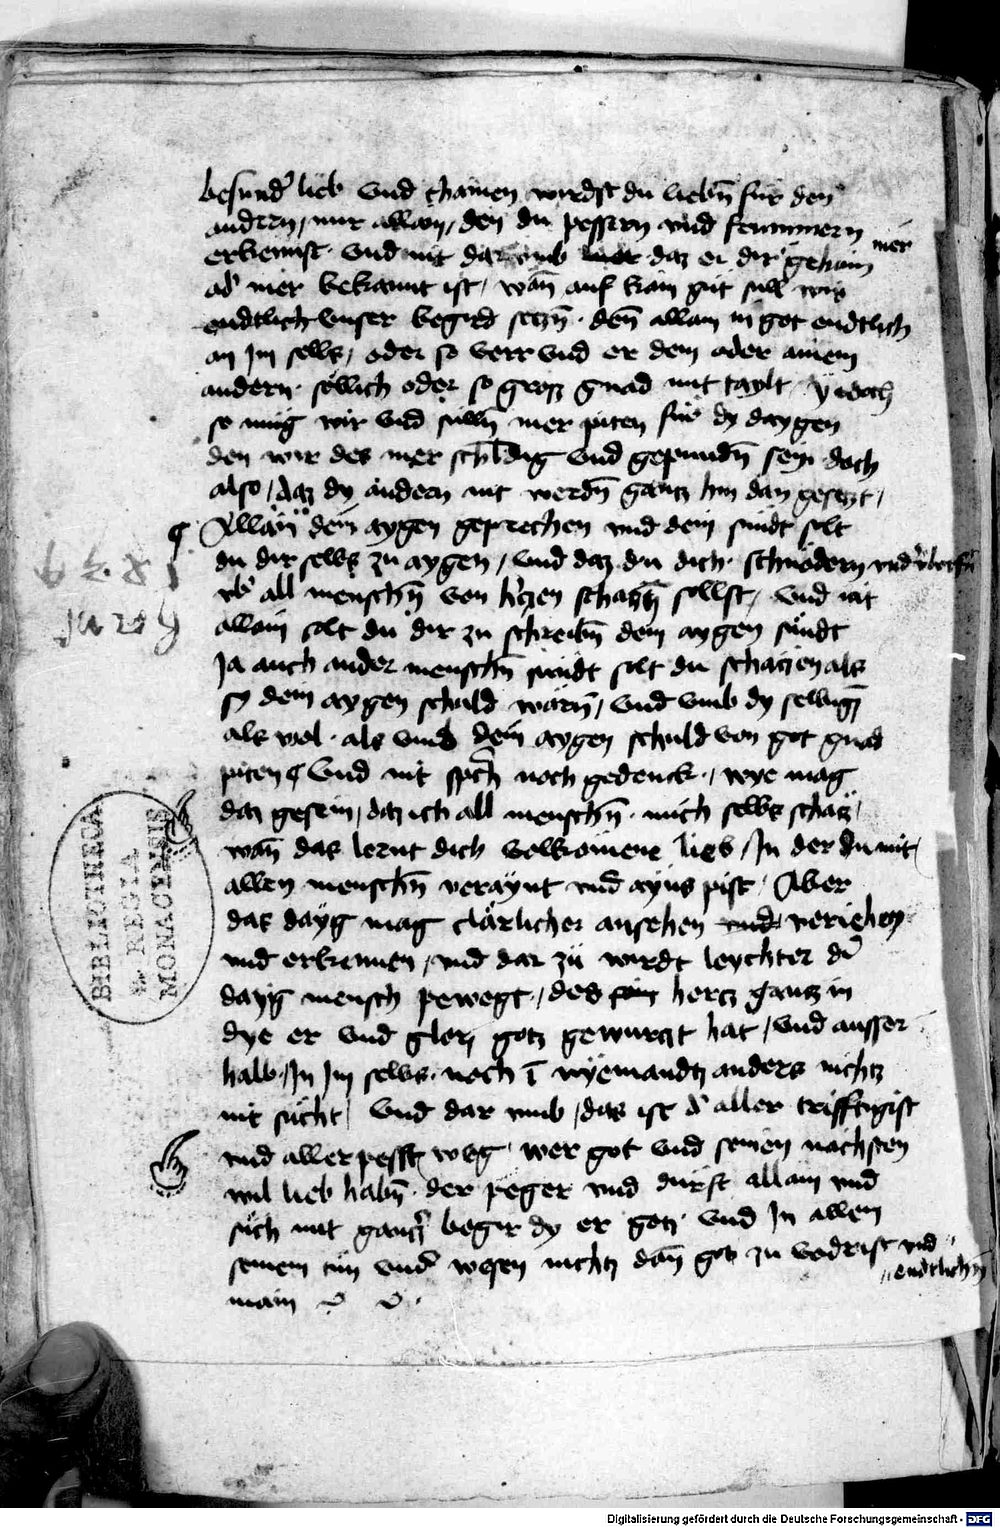 besund' lieb vnd chainen wirdst du liebn̄ für den
andern / nur allain / den du pessern vnd frummern
erkennst · vnd nit dar vmb daz er dir geham mer
ad' mer bekannt ist / wan̄ auf kain gut süll wir
endtlich vnser begird seczn̄ · den̄ allain in got endtlich
an Im selbs / oder so verr vnd er dem oder ainem
andern · söllich oder so gross gnad mit taylt / yedoch
so müg wir vnd sulln̄ mer piten für dy daygen
den wir des mer schuldig vnd gepundn̄ sein doch
also / daz dy andern nit werdn̄ gantz hin dan gesetzt /
¶ Allain dein aygen geprechen vnd dein sündt solt
du dir selbs zu aygen / vnd daz du dich · schnödern vnd
vb' all menschn̄ von h'czen schaczn̄ sollst / vnd nit
allain solt du dir zu schreibn̄ dein aygen sündt
Ja auch ander menschn̄ sündt solt du schaczen als
sy dein aygen schuld wärn̄ / vnd vmb dy selbign̄
als wol · als vmb dein aygen schuld von got gnad
piten ¶ Vnd nit sprich noch gedenck · / wye mag
daz gesein / daz ich all menschn̄ · mich selbs schacz /
wan̄ das lernt dich volkömene lieb / In der du mit
allen menschn̄ veraynt vnd ayns pist / Aber
das dayg mag clärlicher ansehen vnd veriehen
vnd erkennen / vnd dar zü wirdt leychter d'
dayg mensch pewegt · / des sein hercz gancz in
dye er vnd glorj gotz gewurczt hat / vnd ausser
halb · / In Im selbs · noch ī nyemandtz anders nichtz
nit sücht / vnd dar vmb / das ist d' aller trifftigist
vnd aller pesst weg · wer got vnd seinen nachsten
wil lieb habn̄ · der peger vnd dürst allain vnd
süch mit gancz' begir dy er gotz · vnd In allen
seinem tün vnd wesen nichtz dan̄ got zu vodrist vnd
endtlich
main
BIBLIOTHECA
REGIA
MONACENSIS
Digitalisierung gefördert durch die Deutsche Forschungsgemeinschaft - DFG